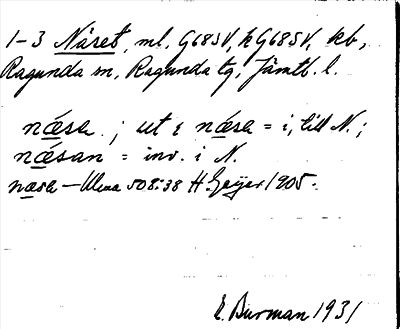 1-3 Näset, ml. G68SV, k G68SV, kb,
Ragunda sn, Ragunda tg, Jämtl. l.
næsa ; ut i næsa = i, till N.;
næsan = inv. i N.
næsa - Ulma 508:38 H. Geijer 1905.
E. Burman 1931